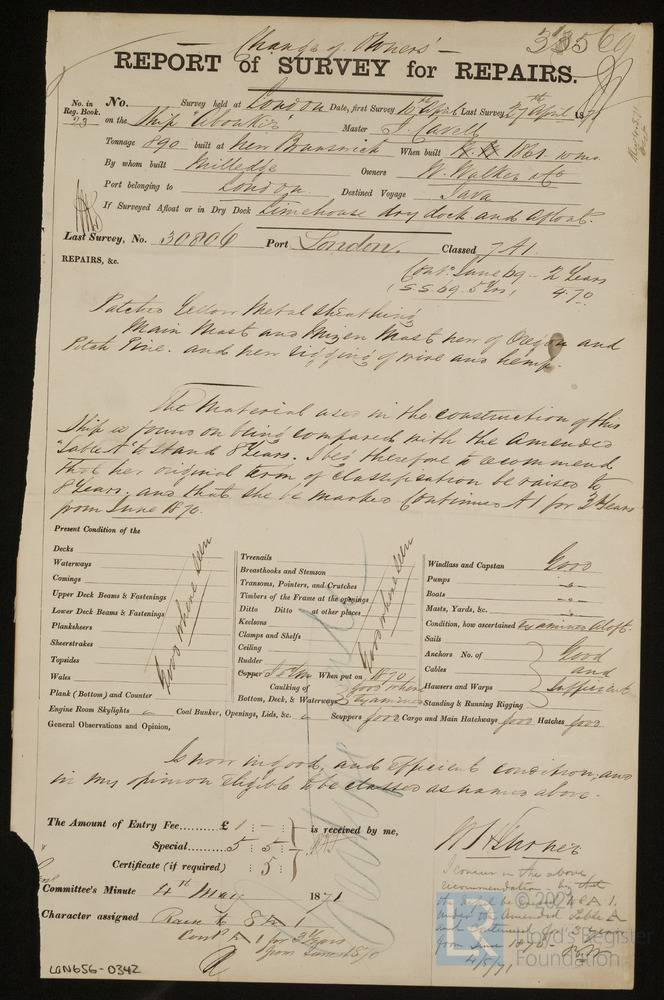 Change of Owners' –
33569
REPORT of SURVEY for REPAIRS.
No. in Reg. Book. No. Survey held at London Date, first Survey 10th April Last Survey 27th April 1871
23 on the Ship "Aboakir" Master J. Cavell
Tonnage 890 built at New Brunswick When built 1861. 10 mo
By whom built Milledge Owners W. Walker & Co
Port belonging to London Destined Voyage Java
If Surveyed Afloat or in Dry Dock Limehouse dry dock and afloat.
Last Survey, No. 30806 Port London. Classed 7 A1.
REPAIRS, &c. Cont. June 69 - 2 Years
(S.S. 69. 5 Yrs) 4.70
Patched Yellow Metal Sheathing
Main Mast and Mizen Mast new of Oregon and
Pitch Pine. and new rigging of wire and hemp.
The Material used in the construction of this
Ship is found on being compared with the Amended
"Table A" to stand 8 Years. I beg therefore to recommend
that her original term of classification be raised to
8 Years, and that she be marked Continued A1 for 3 Years
from June 1870.
Present Condition of the
Decks
Waterways
Comings
Upper Deck Beams & Fastenings
Lower Deck Beams & Fastenings
Planksheers
Sheerstrakes
Topsides
Wales
Plank (Bottom) and Counter
Good where seen
Engine Room Skylights
Treenails
Breasthooks and Stemson
Transoms, Pointers, and Crutches
Timbers of the Frame at the openings
Ditto Ditto at other places
Keelsons
Clamps and Shelfs
Ceiling
Rudder
Good where seen
Copper When put on 1870
Caulking of Bottom, Deck, & Waterways good where examined
Coal Bunker, Openings, Lids, &c. Scuppers good Cargo and Main Hatchways good Hatches good
Windlass and Capstan Good
Pumps - " -
Boats - " -
Masts, Yards, &c. - " -
Condition, how ascertained examined aloft.
Sails
Anchors No. of
Cables
Hausers and Warps
Standing & Running Rigging
Good and Sufficient
General Observations and Opinion,
Is now in good, and efficient condition, and
in my opinion eligible to be classed as named above.
The Amount of Entry Fee......... £ 1 : - : -
Special......... 5 : 5 :
Certificate (if required) : 5 :
is received by me,
Committee's Minute 4th May 1871
Character assigned Raise to 8 A
Contd A 1 for 3 Years
from June 1870
I concur in the above
recommendation
under the Amended Table A
and continued for 3 Years
from June 1870.
4/5/71
LON656-0342
LR
© 2021
Lloyd's Register
Foundation